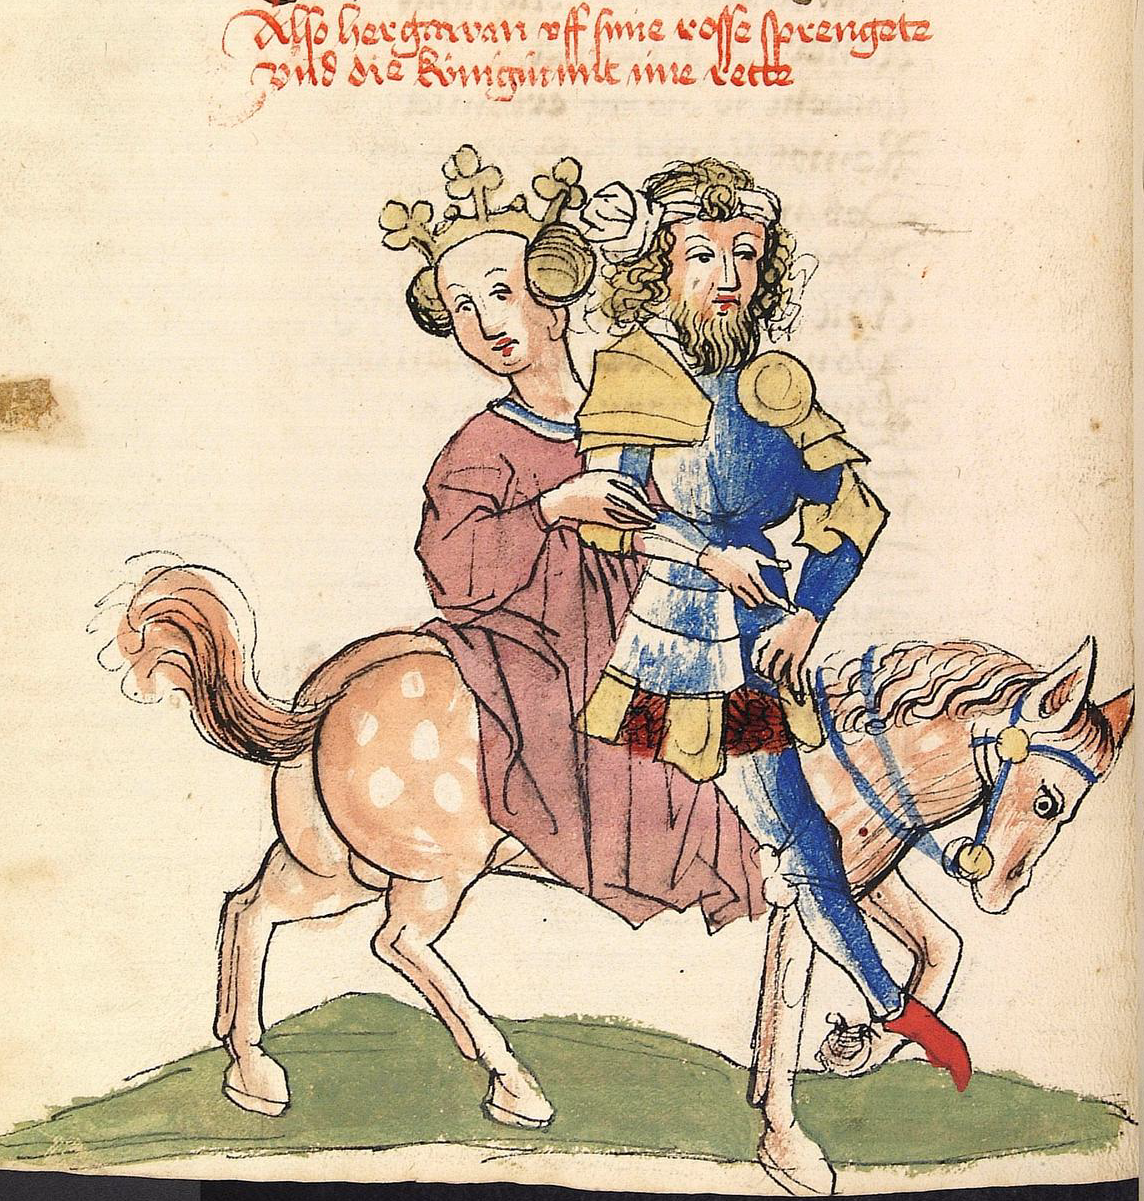 Also her gawan vff sime rosse sprengete
Vnd die königin mit ime rette